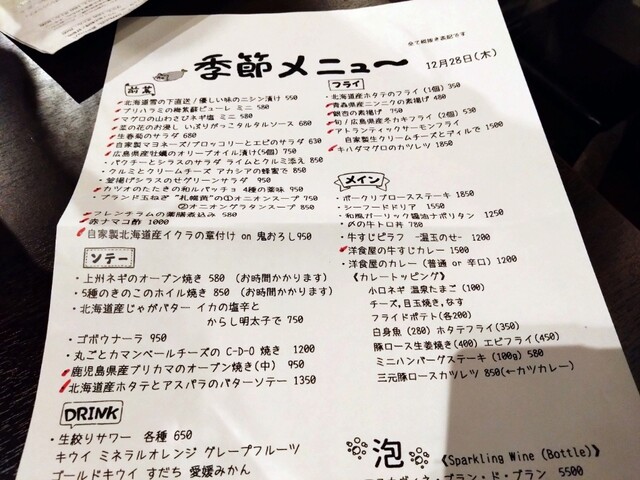 全て税抜き表記です
季節メニュ〜
12月28日(木)
前菜
・北海道雪の下直送/優しい味のニシン漬け 550
・ブリハラミの梅紫蘇ビューレ ミニ 580
・マグロの山わさびネギ塩 ミニ 580
・菜の花のお浸し いぶりがっこタルタルソース 680
・生春菊のサラダ 680
・自家製マヨネーズ/ブロッコリーとエビのサラダ 630
・広島県産牡蠣のオリーブオイル漬け(5個) 750
・パクチーとシラスのサラダ ライムとクルミ添え 850
・クルミとクリームチーズ アカシアの蜂蜜で 850
・釜揚げシラスのせグリーンサラダ 950
・カツオのたたきの和ルバッチョ 4種の薬味 950
・ブランド玉ねぎ "札幌黄"の①オニオンスープ 750
②オニオングラタンスープ 850
・フレンチラムの薬膳煮込み 580
・赤ナマコ酢 1000
・自家製北海道産イクラの章付け on 鬼おろし950
ソテー
・上州ネギのオーブン焼き 580 (お時間かかります)
・5種のきのこのホイル焼き 850 (お時間かかります)
・北海道産じゃがバター イカの塩辛と
からし明太子で 750
・ゴボウナーラ 950
・丸ごとカマンベールチーズの C-D-O 焼き 1200
・鹿児島県産ブリカマのオーブン焼き(中) 950
・北海道産ホタテとアスパラのバターソテー 1350
DRINK
・生絞りサワー 各種 650
キウイ ミネラルオレンジ グレープフルーツ
ゴールドキウイ すだち 愛媛みかん
フライ
・北海道産ホタテのフライ(1個) 350
・青森県産ニンニクの素揚げ 480
・銀杏の素揚げ 750
・旬/広島県産冬カキフライ(2個) 530
・アトランティックサーモンフライ
自家製生クリームチーズとディルで 1500
・キハダマグロのカツレツ 1850
メイン
・ポークリブロースステーキ 1850
・シーフードドリア 1550
・和風ガーリック醤油ナポリタン 1250
・〆の牛トロ丼 780
・牛すじピラフ -温玉のせ- 1200
・洋食屋の牛すじカレー 1500
・洋食屋のカレー(普通 or 辛口) 1200
《カレートッピング》
小口ネギ 温泉たまご(100)
チーズ,目玉焼き,なす
フライドポテト(各200)
白身魚(280) ホタテフライ(350)
豚ロース生姜焼き(400) エビフライ(450)
ミニハンバーグステーキ(100g) 580
三元豚ロースカツレツ 850(←カツカレー)
泡
《Sparkling Wine (Bottle)》
ブラン・ド・ブラン 5500